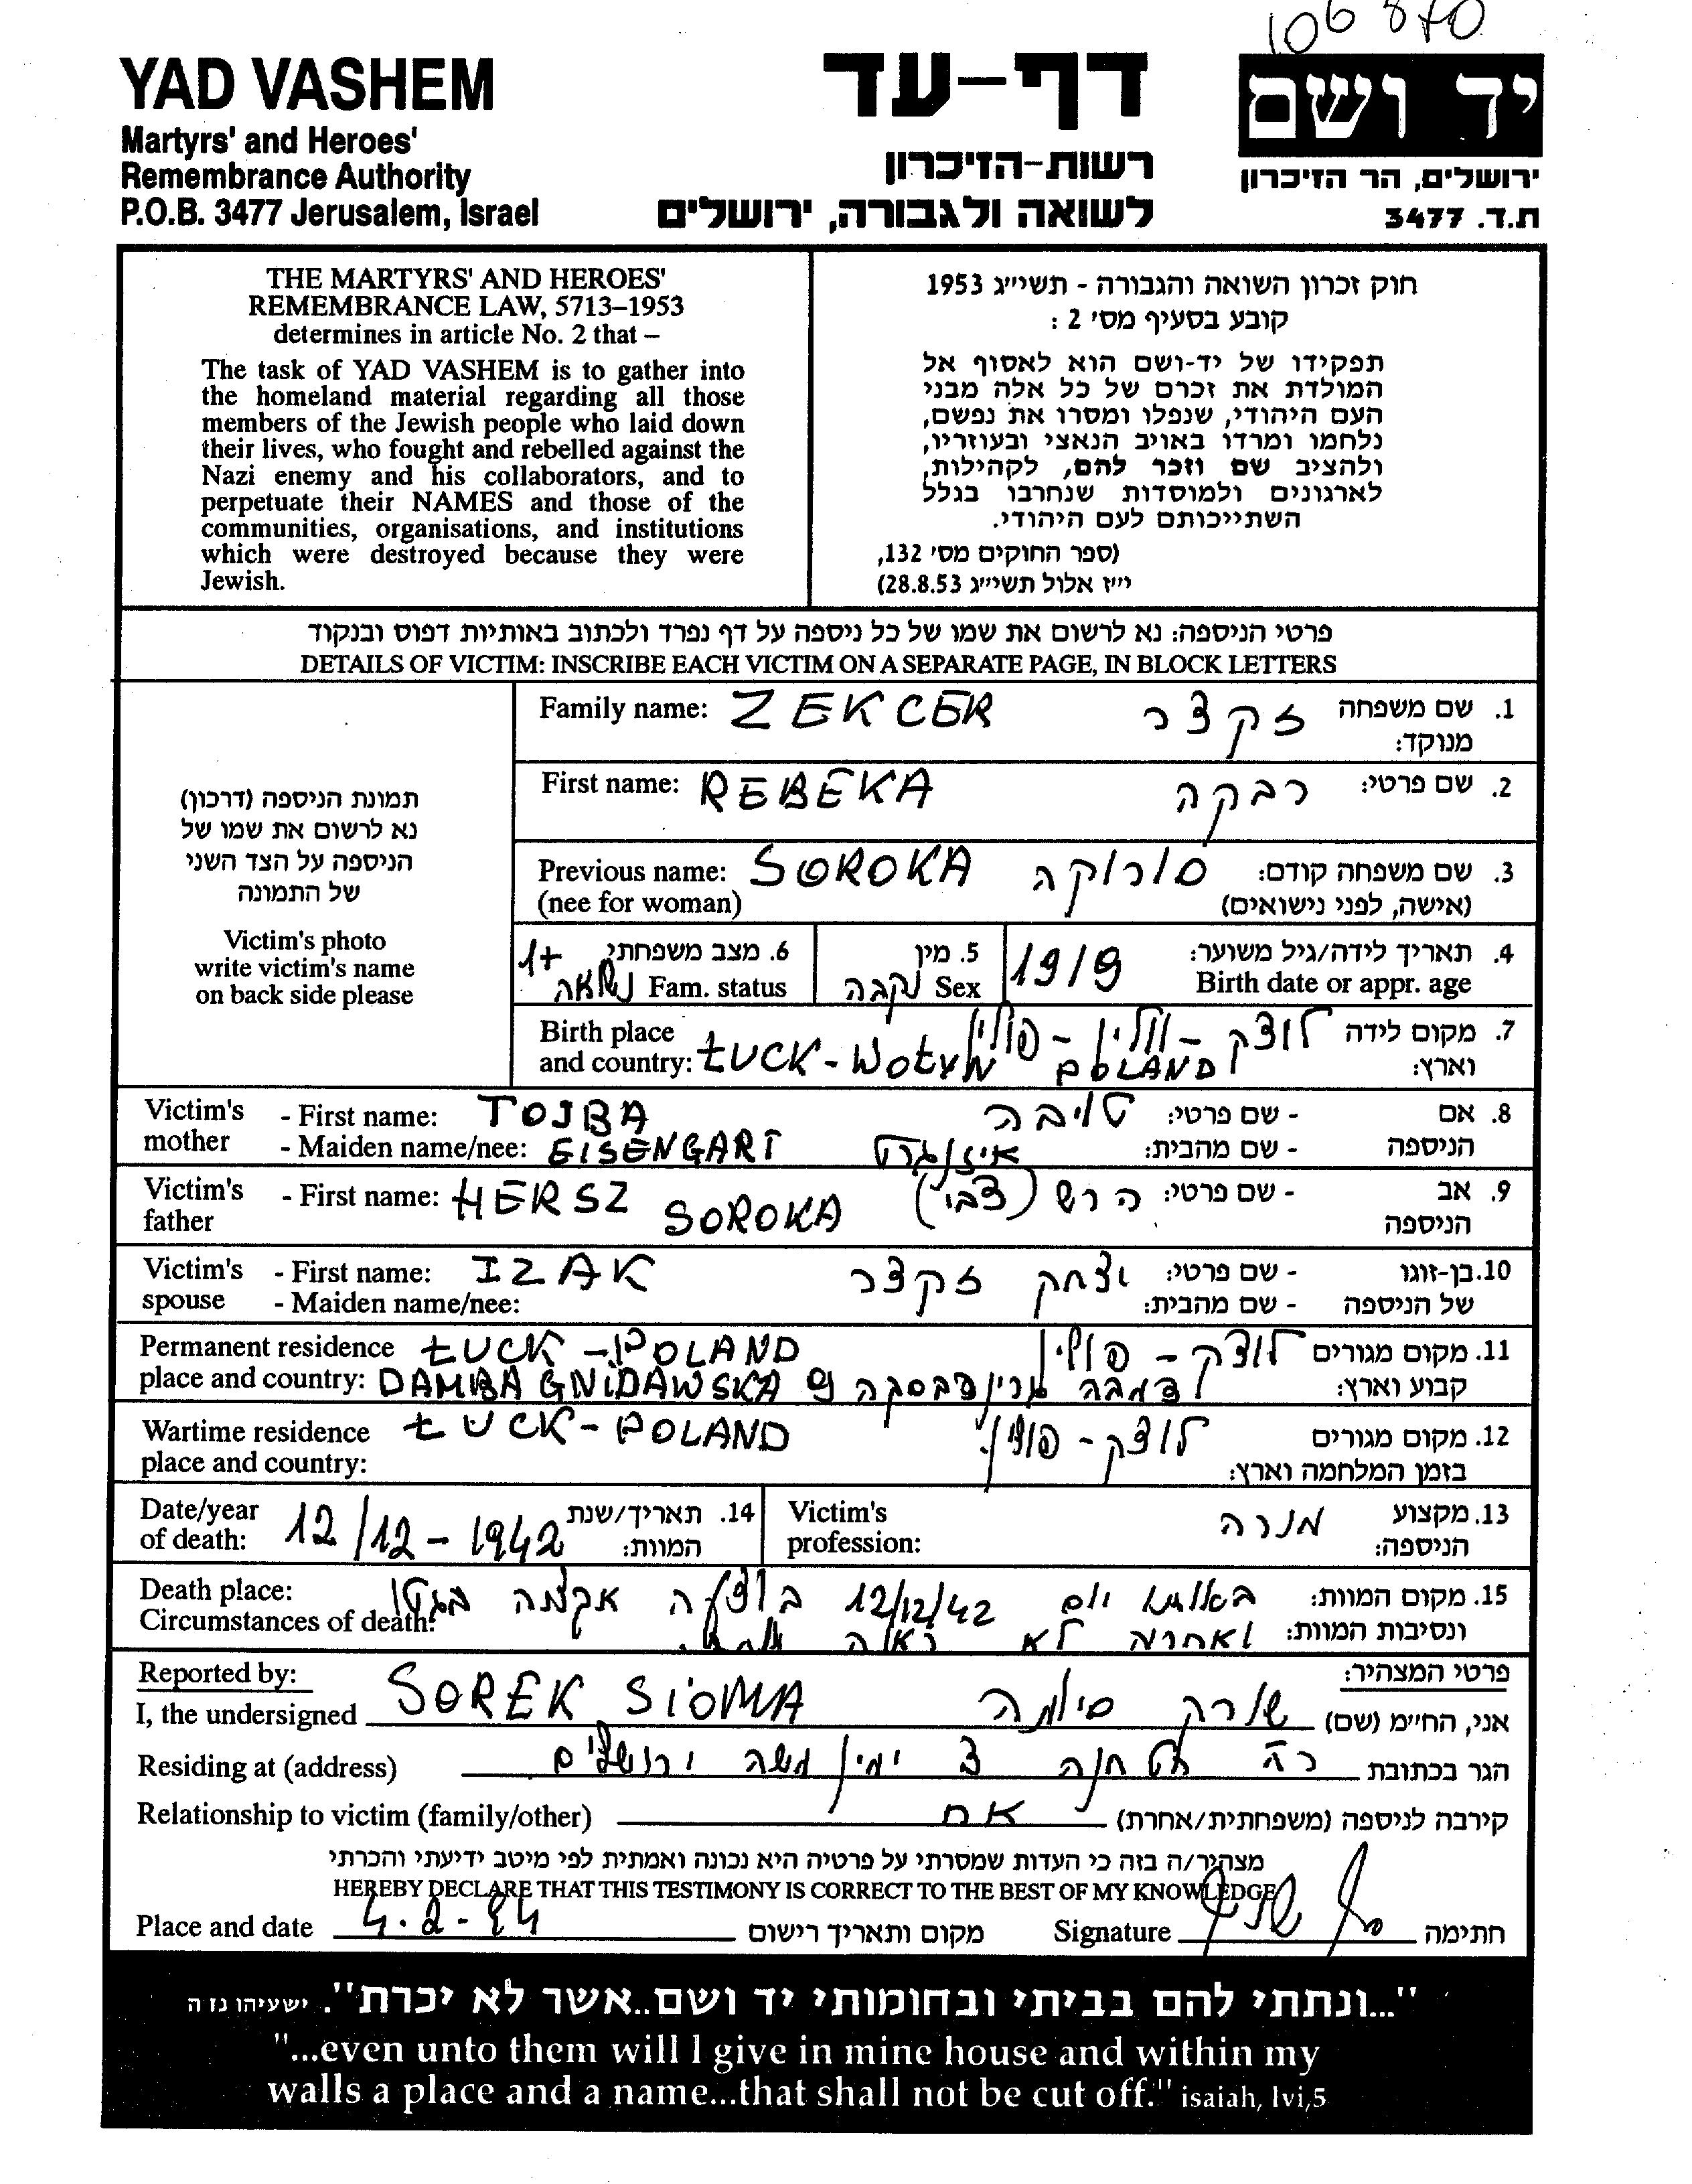 106 870
YAD VASHEM
Martyrs' and Heroes'
Remembrance Authority
P.O.B. 3477 Jerusalem, Israel
דף-עד
רשות-הזיכרון
לשואה ולגבורה, ירושלים
יד ושם
ירושלים, הר הזיכרון
ת.ד. 3477
THE MARTYRS' AND HEROES'
REMEMBRANCE LAW, 5713–1953
determines in article No. 2 that –
The task of YAD VASHEM is to gather into
the homeland material regarding all those
members of the Jewish people who laid down
their lives, who fought and rebelled against the
Nazi enemy and his collaborators, and to
perpetuate their NAMES and those of the
communities, organisations, and institutions
which were destroyed because they were
Jewish.
חוק זכרון השואה והגבורה - תשי״ג 1953
קובע בסעיף מס׳ 2 :
תפקידו של יד-ושם הוא לאסוף אל
המולדת את זכרם של כל אלה מבני
העם היהודי, שנפלו ומסרו את נפשם,
נלחמו ומרדו באויב הנאצי ובעוזריו,
ולהציב שם וזכר להם, לקהילות,
לארגונים ולמוסדות שנחרבו בגלל
השתייכותם לעם היהודי.
(ספר החוקים מס׳ 132,
י״ז אלול תשי״ג 28.8.53)
פרטי הניספה: נא לרשום את שמו של כל ניספה על דף נפרד ולכתוב באותיות דפוס ובנקוד
DETAILS OF VICTIM: INSCRIBE EACH VICTIM ON A SEPARATE PAGE, IN BLOCK LETTERS
תמונת הניספה (דרכון)
נא לרשום את שמו של
הניספה על הצד השני
של התמונה
Victim's photo
write victim's name
on back side please
Family name: ZEKCER זקצר 1. שם משפחה
מנוקד:
First name: REBEKA רבקה 2. שם פרטי:
Previous name: SOROKA סורוקה 3. שם משפחה קודם:
(nee for woman) (אישה, לפני נישואים)
1+ 6. מצב משפחתי 5. מין 1919 4. תאריך לידה/גיל משוער:
נשואה Fam. status נקבה Sex Birth date or appr. age
Birth place לוצק - ווולין - פולין 7. מקום לידה
and country: ŁUCK - WOŁYŃ POLAND וארץ:
Victim's - First name: TOJBA טויבה - שם פרטי: 8. אם
mother - Maiden name/nee: EISENGART איזנגרט - שם מהבית: הניספה
Victim's - First name: HERSZ SOROKA הרש (צבי) - שם פרטי: 9. אב
father הניספה
Victim's - First name: IZAK יצחק זקצר - שם פרטי: 10. בן-זוגו
spouse - Maiden name/nee: - שם מהבית: של הניספה
Permanent residence ŁUCK - POLAND לוצק - פולין 11. מקום מגורים
place and country: DAMBA GNIDAWSKA 9 דמבה גנידבסקה קבוע וארץ:
Wartime residence ŁUCK - POLAND לוצק - פולין 12. מקום מגורים
place and country: בזמן המלחמה וארץ:
Date/year 12/12 - 1942 14. תאריך/שנת Victim's מורה 13. מקצוע
of death: המוות: profession: הניספה:
Death place: יום 12/12/42 15. מקום המוות:
Circumstances of death: ונסיבות המוות: לא
Reported by: פרטי המצהיר:
I, the undersigned SOREK SIOMA שורק סיומה אני, החי״מ (שם)
Residing at (address) ימין משה ירושלים הגר בכתובת
Relationship to victim (family/other) אח קירבה לניספה (משפחתית/אחרת)
מצהיר/ה בזה כי העדות שמסרתי על פרטיה היא נכונה ואמתית לפי מיטב ידיעתי והכרתי
HEREBY DECLARE THAT THIS TESTIMONY IS CORRECT TO THE BEST OF MY KNOWLEDGE
Place and date 4.2-94 מקום ותאריך רישום Signature חתימה
"...ונתתי להם בביתי ובחומותי יד ושם..אשר לא יכרת". ישעיהו נו ה
"...even unto them will I give in mine house and within my
walls a place and a name...that shall not be cut off." isaiah, lvi,5